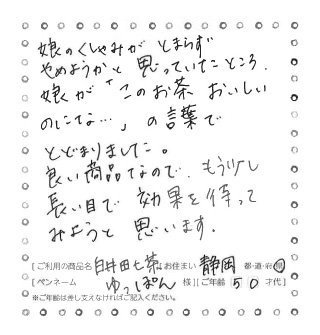 娘のくしゃみが とまらず
やめようかと 思っていたところ、
娘が 「このお茶 おいしい
のにな…」の言葉で
とどまりました。
良い商品なので、もう少し
長い目で 効果を待って
みようと 思います。
[ご利用の商品名 白井田七茶][お住まい 静岡 都・道・府・県]
[ペンネーム ゆっぽん 様][ご年齢 50 才代]
※ご年齢は差し支えなければご記入ください。